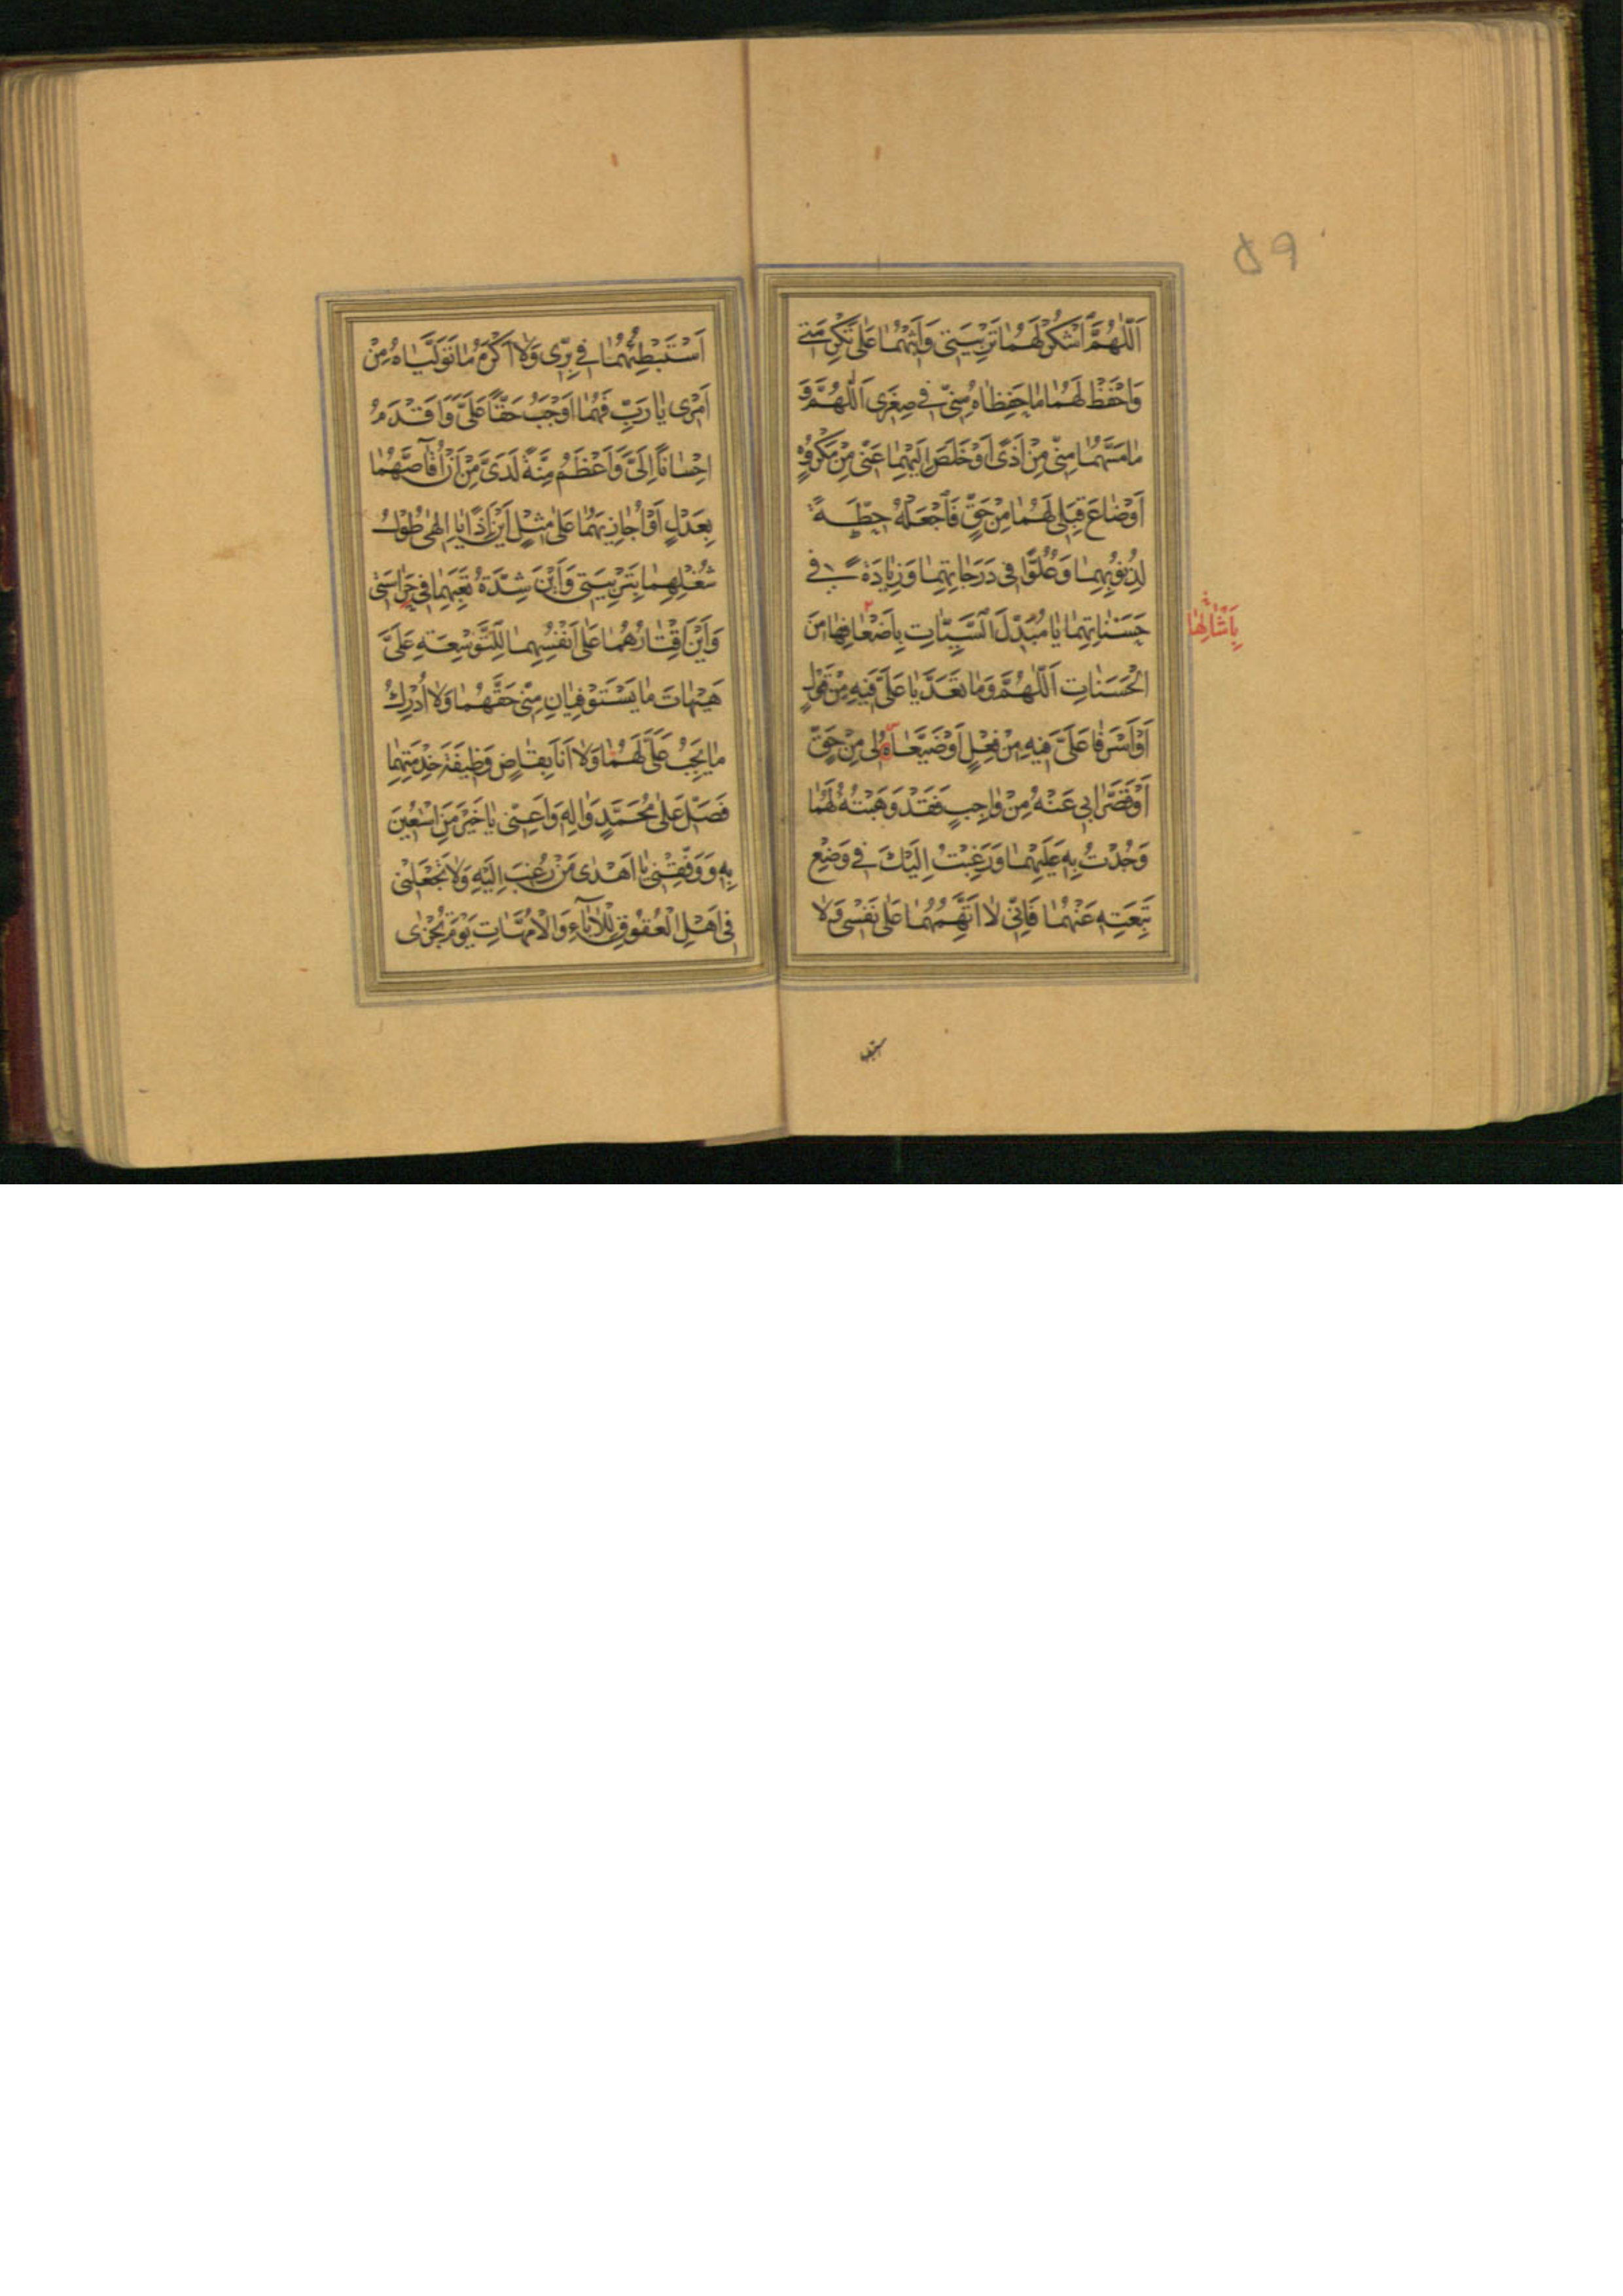 ۵۹
اَللّٰهُمَّ اشْكُرْ لَهُمٰا تَرْبِيَتى وَاَثِبْهُمٰا عَلىٰ تَكْرِمَتى
وَاحْفَظْ لَهُمٰا مٰا حَفِظٰاهُ مِنّى فى صِغَرى اَللّٰهُمَّ وَ
مٰا مَسَّهُمٰا مِنّى مِنْ اَذًى اَوْ خَلَصَ اِلَيْهِمٰا عَنّى مِنْ مَكْرُوهٍ
اَوْ ضٰاعَ قِبَلى لَهُمٰا مِنْ حَقٍّ فَاجْعَلْهُ حِطَّةً
لِذُنُوبِهِمٰا وَعُلُوًّا فى دَرَجٰاتِهِمٰا وَزِيٰادَةً فى
حَسَنٰاتِهِمٰا يٰا مُبَدِّلَ السَّيِّئٰاتِ بِاَضْعٰافِهٰا مِنَ
بِاَمْثٰالِهٰا
الْحَسَنٰاتِ اَللّٰهُمَّ وَمٰا تَعَدَّيٰا عَلَىَّ فيهِ مِنْ قَوْلٍ
اَوْ اَسْرَفٰا عَلَىَّ فيهِ مِنْ فِعْلٍ اَوْ ضَيَّعٰاهُ لى مِنْ حَقٍّ
اَوْ قَصَّرٰا بى عَنْهُ مِنْ وٰاجِبٍ فَقَدْ وَهَبْتُهُ لَهُمٰا
وَجُدْتُ بِهِ عَلَيْهِمٰا وَرَغِبْتُ اِلَيْكَ فى وَضْعِ
تَبِعَتِهِ عَنْهُمٰا فَاِنّى لٰا اَتَّهِمُهُمٰا عَلىٰ نَفْسى وَلٰا
اَسْتَبْطِئُهُمٰا فى بِرّى وَلٰا اَكْرَهُ مٰا تَوَلَّيٰاهُ مِنْ
اَمْرى يٰا رَبِّ فَهُمٰا اَوْجَبُ حَقًّا عَلَىَّ وَاَقْدَمُ
اِحْسٰانًا اِلَىَّ وَاَعْظَمُ مِنَّةً لَدَىَّ مِنْ اَنْ اُقٰاصَّهُمٰا
بِعَدْلٍ اَوْ اُجٰازِيَهُمٰا عَلىٰ مِثْلٍ اَيْنَ اِذًا يٰا اِلٰهى طُولُ
شُغْلِهِمٰا بِتَرْبِيَتى وَاَيْنَ شِدَّةُ تَعَبِهِمٰا فى حِرٰاسَتى
وَاَيْنَ اِقْتٰارُهُمٰا عَلىٰ اَنْفُسِهِمٰا لِلتَّوْسِعَةِ عَلَىَّ
هَيْهٰاتَ مٰا يَسْتَوْفِيٰانِ مِنّى حَقَّهُمٰا وَلٰا اُدْرِكُ
مٰا يَجِبُ عَلَىَّ لَهُمٰا وَلٰا اَنَا بِقٰاضٍ وَظيفَةَ خِدْمَتِهِمٰا
فَصَلِّ عَلىٰ مُحَمَّدٍ وَاٰلِهِ وَاَعِنّى يٰا خَيْرَ مَنِ اسْتُعينَ
بِهِ وَوَفِّقْنى يٰا اَهْدىٰ مَنْ رُغِبَ اِلَيْهِ وَلٰا تَجْعَلْنى
فى اَهْلِ الْعُقُوقِ لِلْاٰبٰآءِ وَالْاُمَّهٰاتِ يَوْمَ تُجْزىٰ